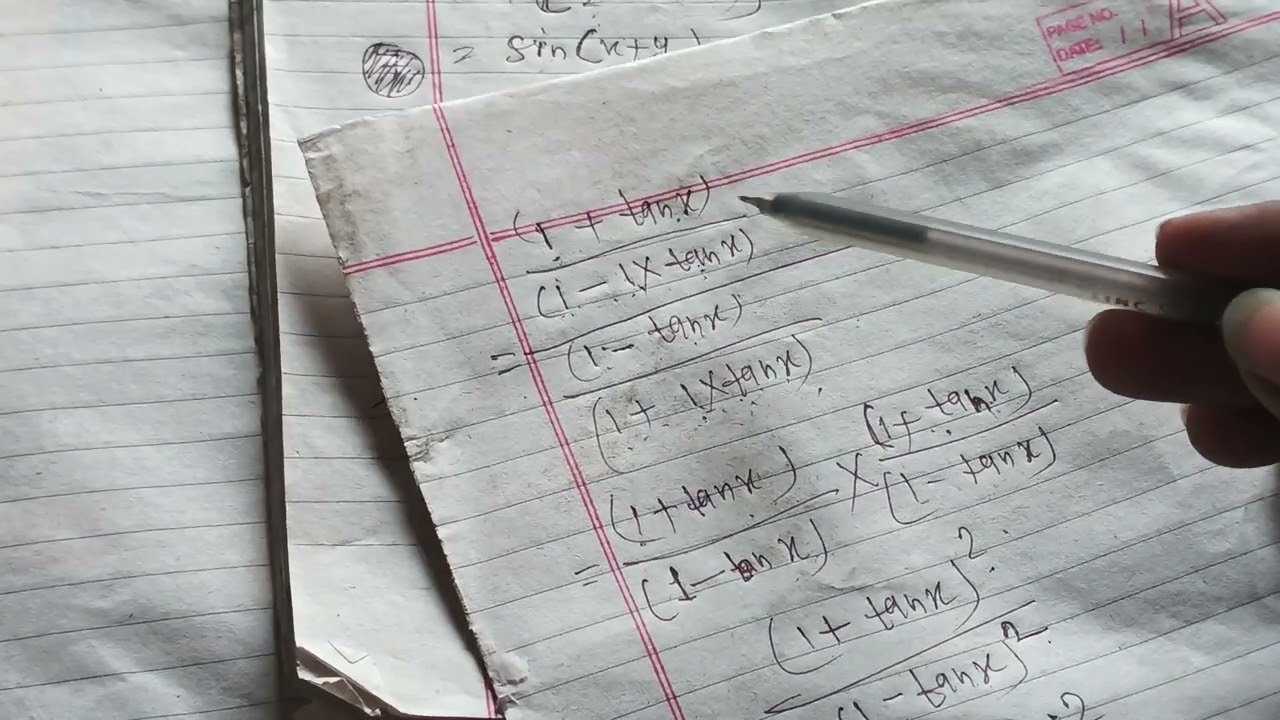 = sin(x+y)
PAGE NO.
DATE: / /
A
(1 + tanx)
(1 - 1X tanx)
=
(1 - tanx)
(1 + 1X tanx)
= (1 + tanx) X (1 + tanx)
(1 - tan x) (1 - tanx)
(1 + tanx)2
(1 - tanx)2